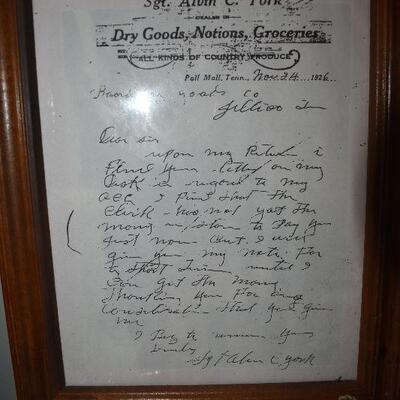 Sgt. Alvin C. York
DEALER IN
Dry Goods, Notions, Groceries
ALL KINDS OF COUNTRY PRODUCE
Pall Mall, Tenn., Nov. 24 1926
goods co
Jellico Tn
Dear sir
upon my Return i
find your letter on my
Desk in regard to my
I find that the
Clerk has not got the
money on Hand to Pay you
Just now But I will
give you my note For
a Short Time until I
Can get the money
Thanking you For any
Consideration that you give
me
I Beg to remain yours
truly
Sgt Alvin C York